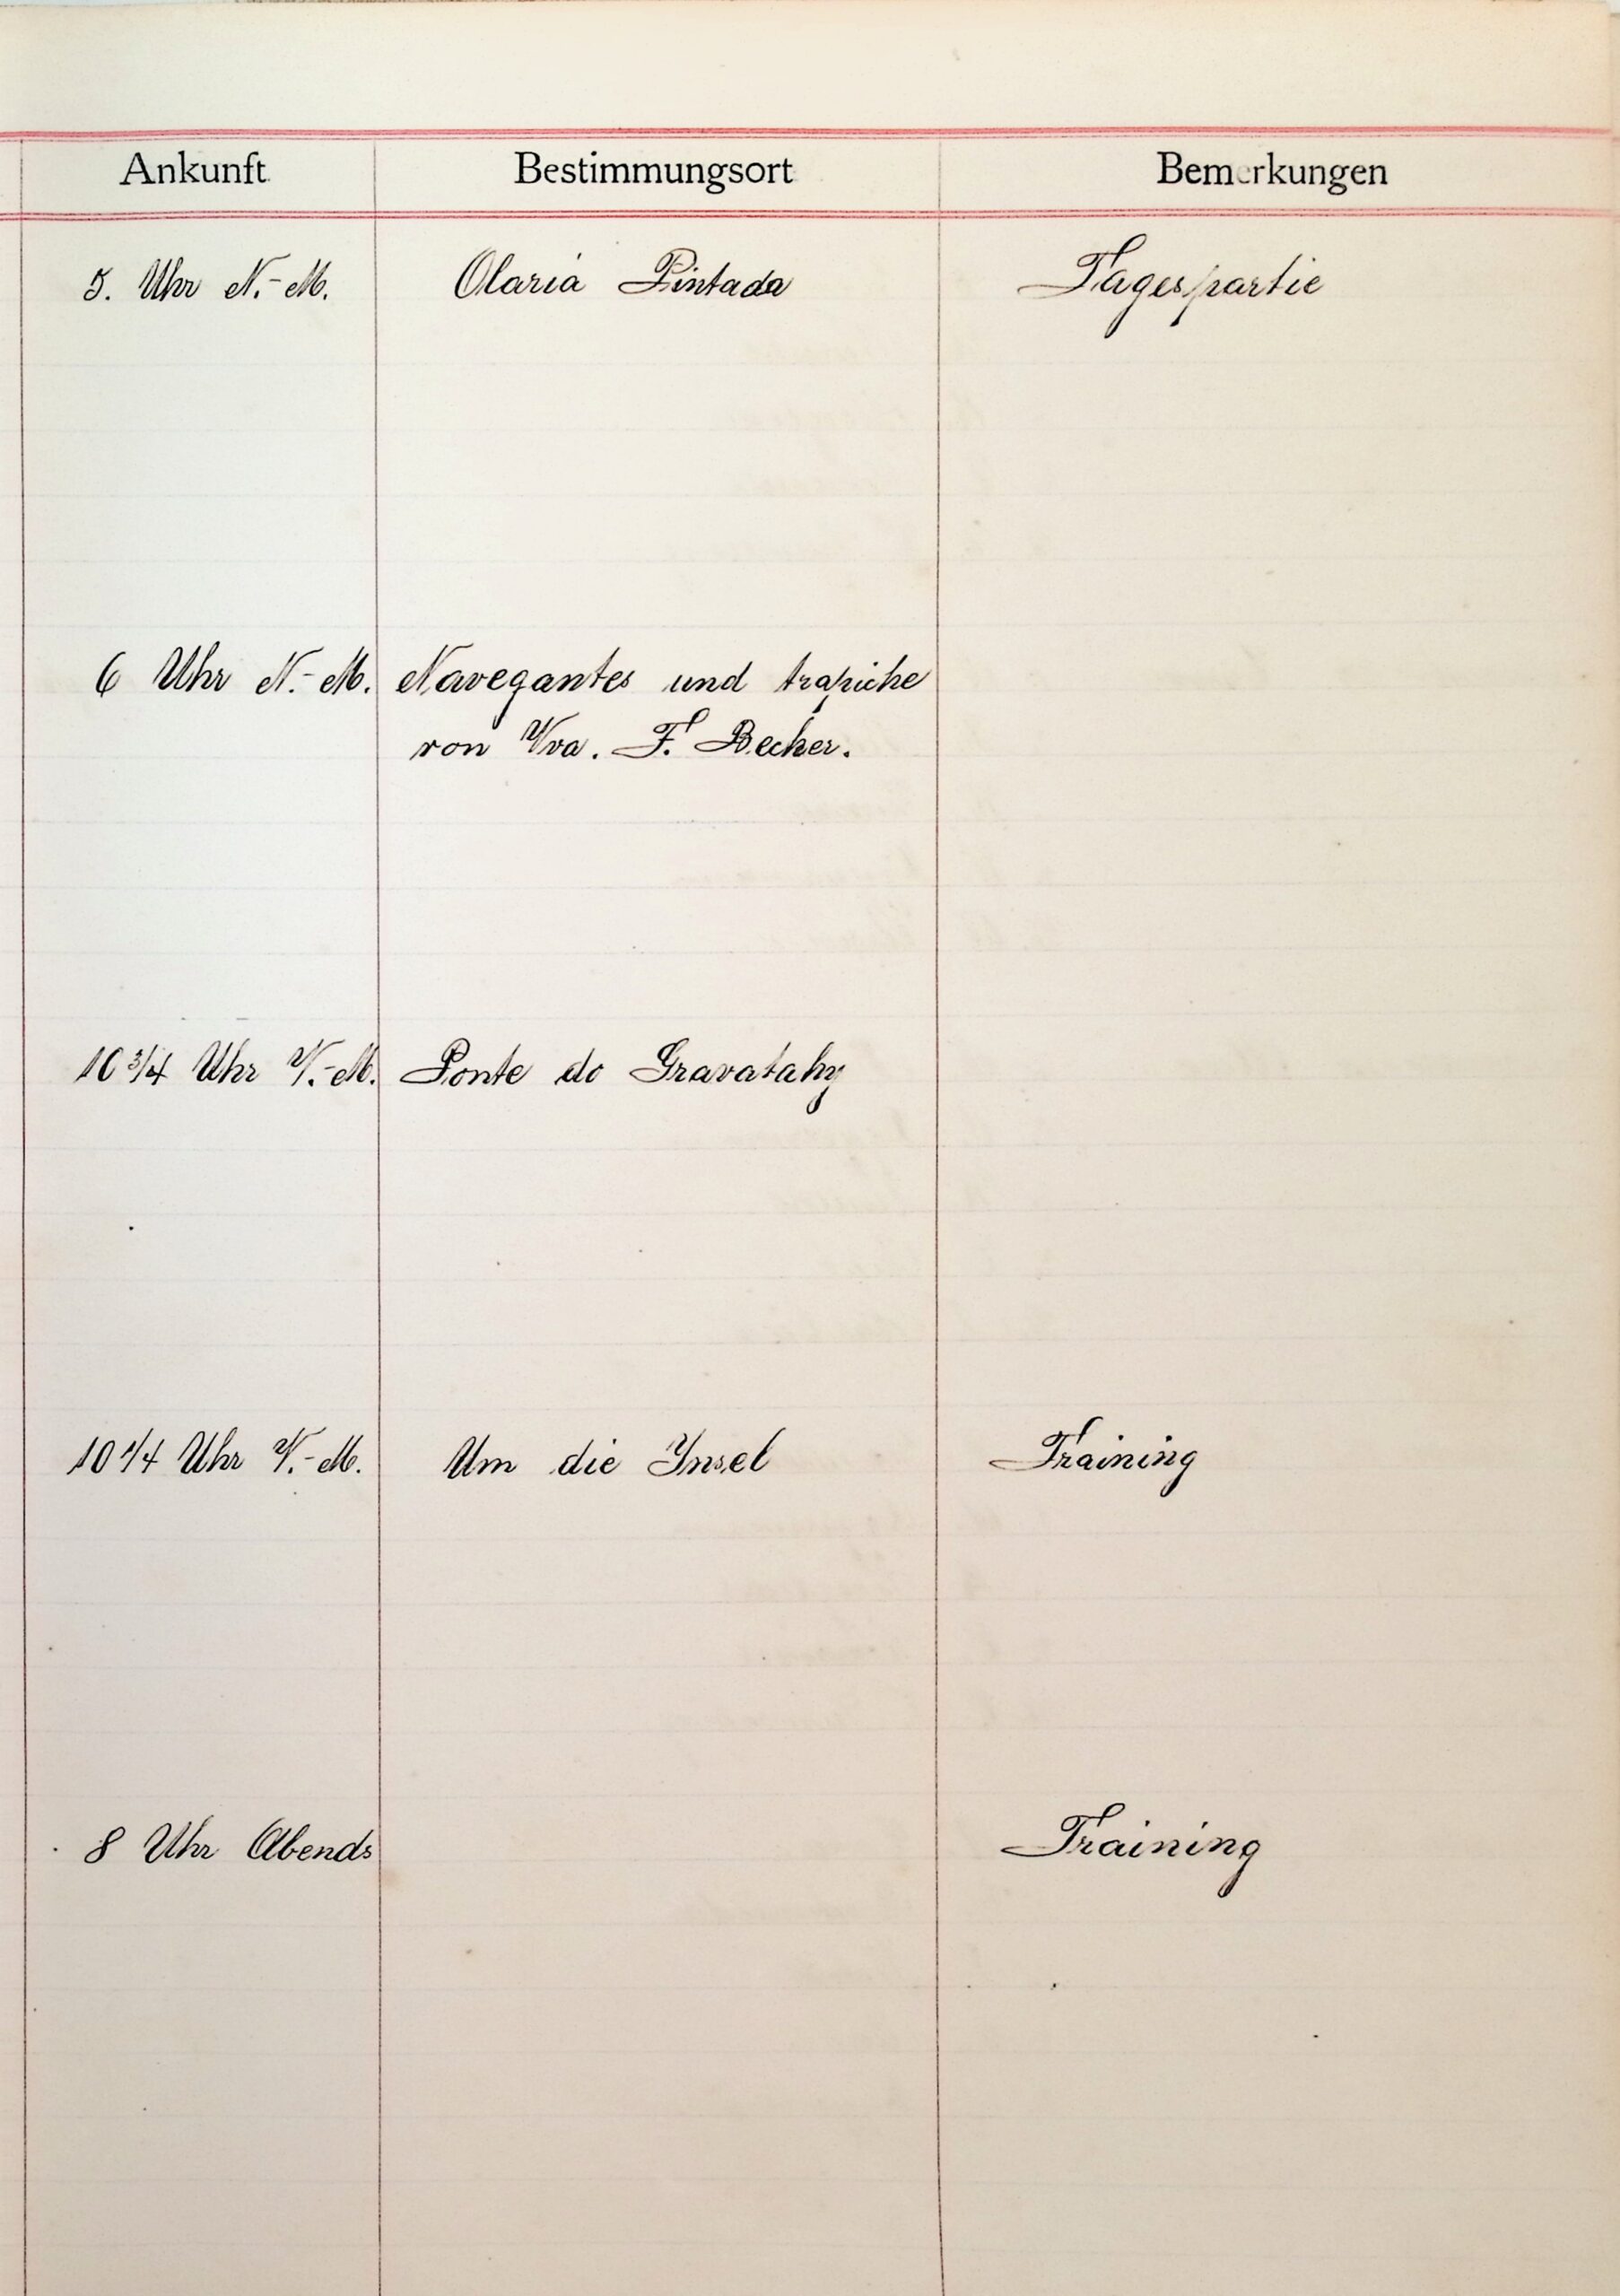 Ankunft Bestimmungsort Bemerkungen
5. Uhr N.-M. Olaria Pintada Tagespartie
6 Uhr N.-M. Navegantes und trapiche
von Vva. F. Becker.
10 3/4 Uhr V.-M. Ponte do Gravatahy
10 1/4 Uhr V.-M. Um die Insel Training
8 Uhr Abends Training